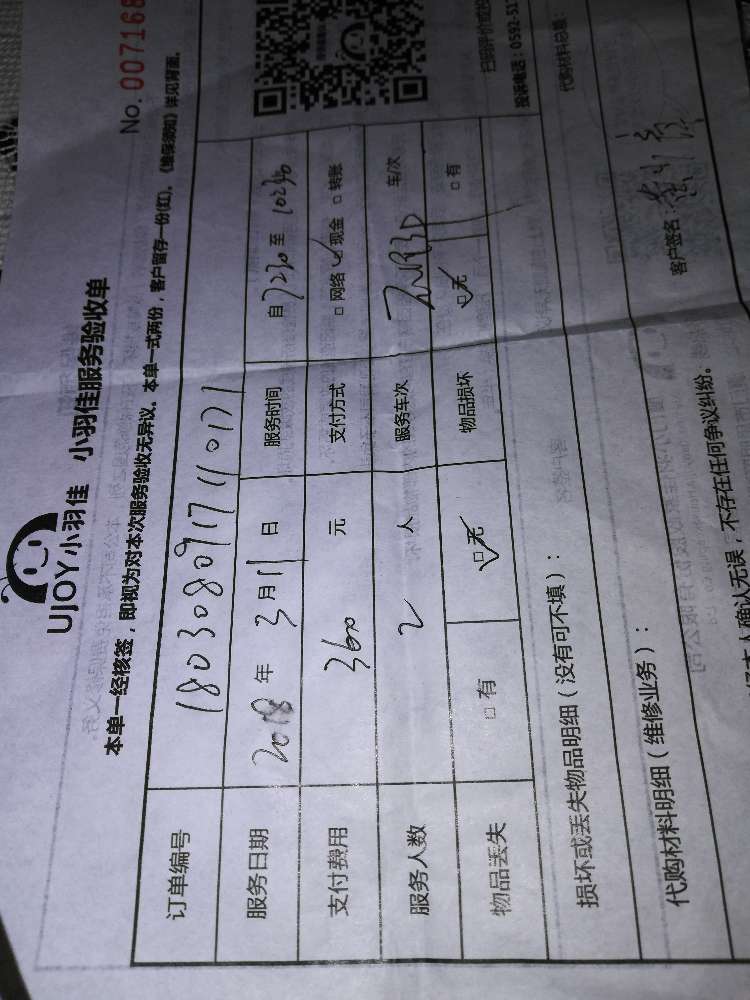 UJOY小羽佳 小羽佳服务验收单
No. 007168
本单一经核签，即视为对本次服务验收无异议。本单一式两份，客户留存一份(红)。《维保须知》详见背面。
订单编号 1803080917110171
服务日期 2018年3月11日 服务时间 自7230至10230
支付费用 360元 支付方式 □网络 ☑现金 □转账
服务人数 2人 服务车次 车/次
物品丢失 □有 ☑无 物品损坏 ☑无 □有
损坏或丢失物品明细（没有可不填）：
代购材料明细（维修业务）：
代购材料总额：
客户签名：
确认无误，不存在任何争议纠纷。
投诉电话：0592-51